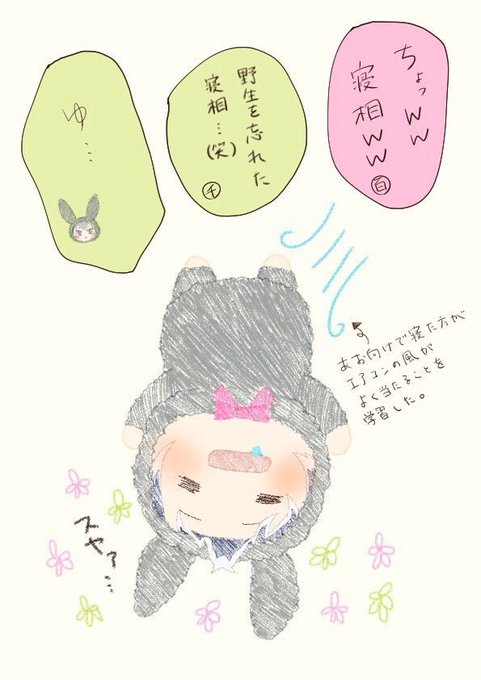 ちょっwww
寝相ww
百
野生を忘れた
寝相…(笑)
千
ゆ…
あお向けで寝た方が
エアコンの風が
よく当たることを
学習した。
スヤァ…